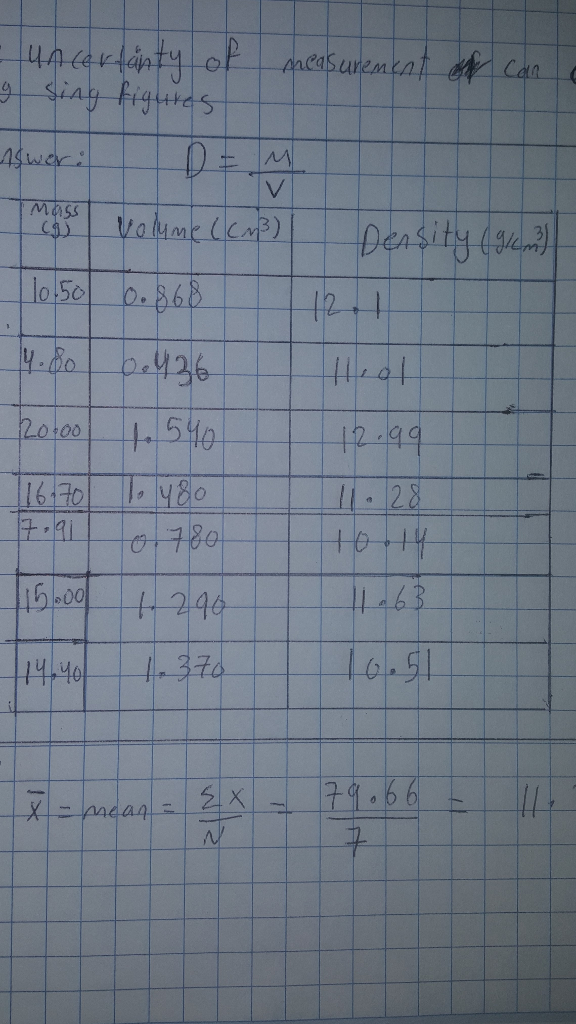 : uncertainty of measurement can
g sing figures
nswer: D = M
V
Mass (g) Volume (cm³) Density (g/cm³)
10.50 0.868 12.1
4.80 0.436 11.01
20.00 1.540 12.99
16.70 1.480 11.28
7.91 0.780 10.14
15.00 1.290 11.63
14.40 1.370 10.51
x̄ = mean = Σx = 79.66 = 11.
N 7